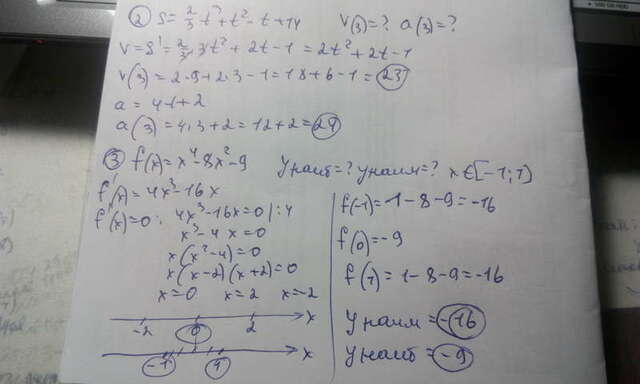 ② S = 2/3 t³ + t² - t + 14 v(3) = ? a(3) = ?
v = S' = 2/3 · 3t² + 2t - 1 = 2t² + 2t - 1
v(3) = 2·9 + 2·3 - 1 = 18 + 6 - 1 = 23
a = 4t + 2
a(3) = 4·3 + 2 = 12 + 2 = 24
③ f(x) = x⁴ - 8x² - 9 y наиб = ? y наим = ? x ∈ [-1; 1]
f'(x) = 4x³ - 16x
f'(x) = 0: 4x³ - 16x = 0 | : 4
x³ - 4x = 0
x(x² - 4) = 0
x(x - 2)(x + 2) = 0
x = 0 x = 2 x = -2
-2 0 2 x
-1 1 x
f(-1) = 1 - 8 - 9 = -16
f(0) = -9
f(1) = 1 - 8 - 9 = -16
y наим = -16
y наиб = -9